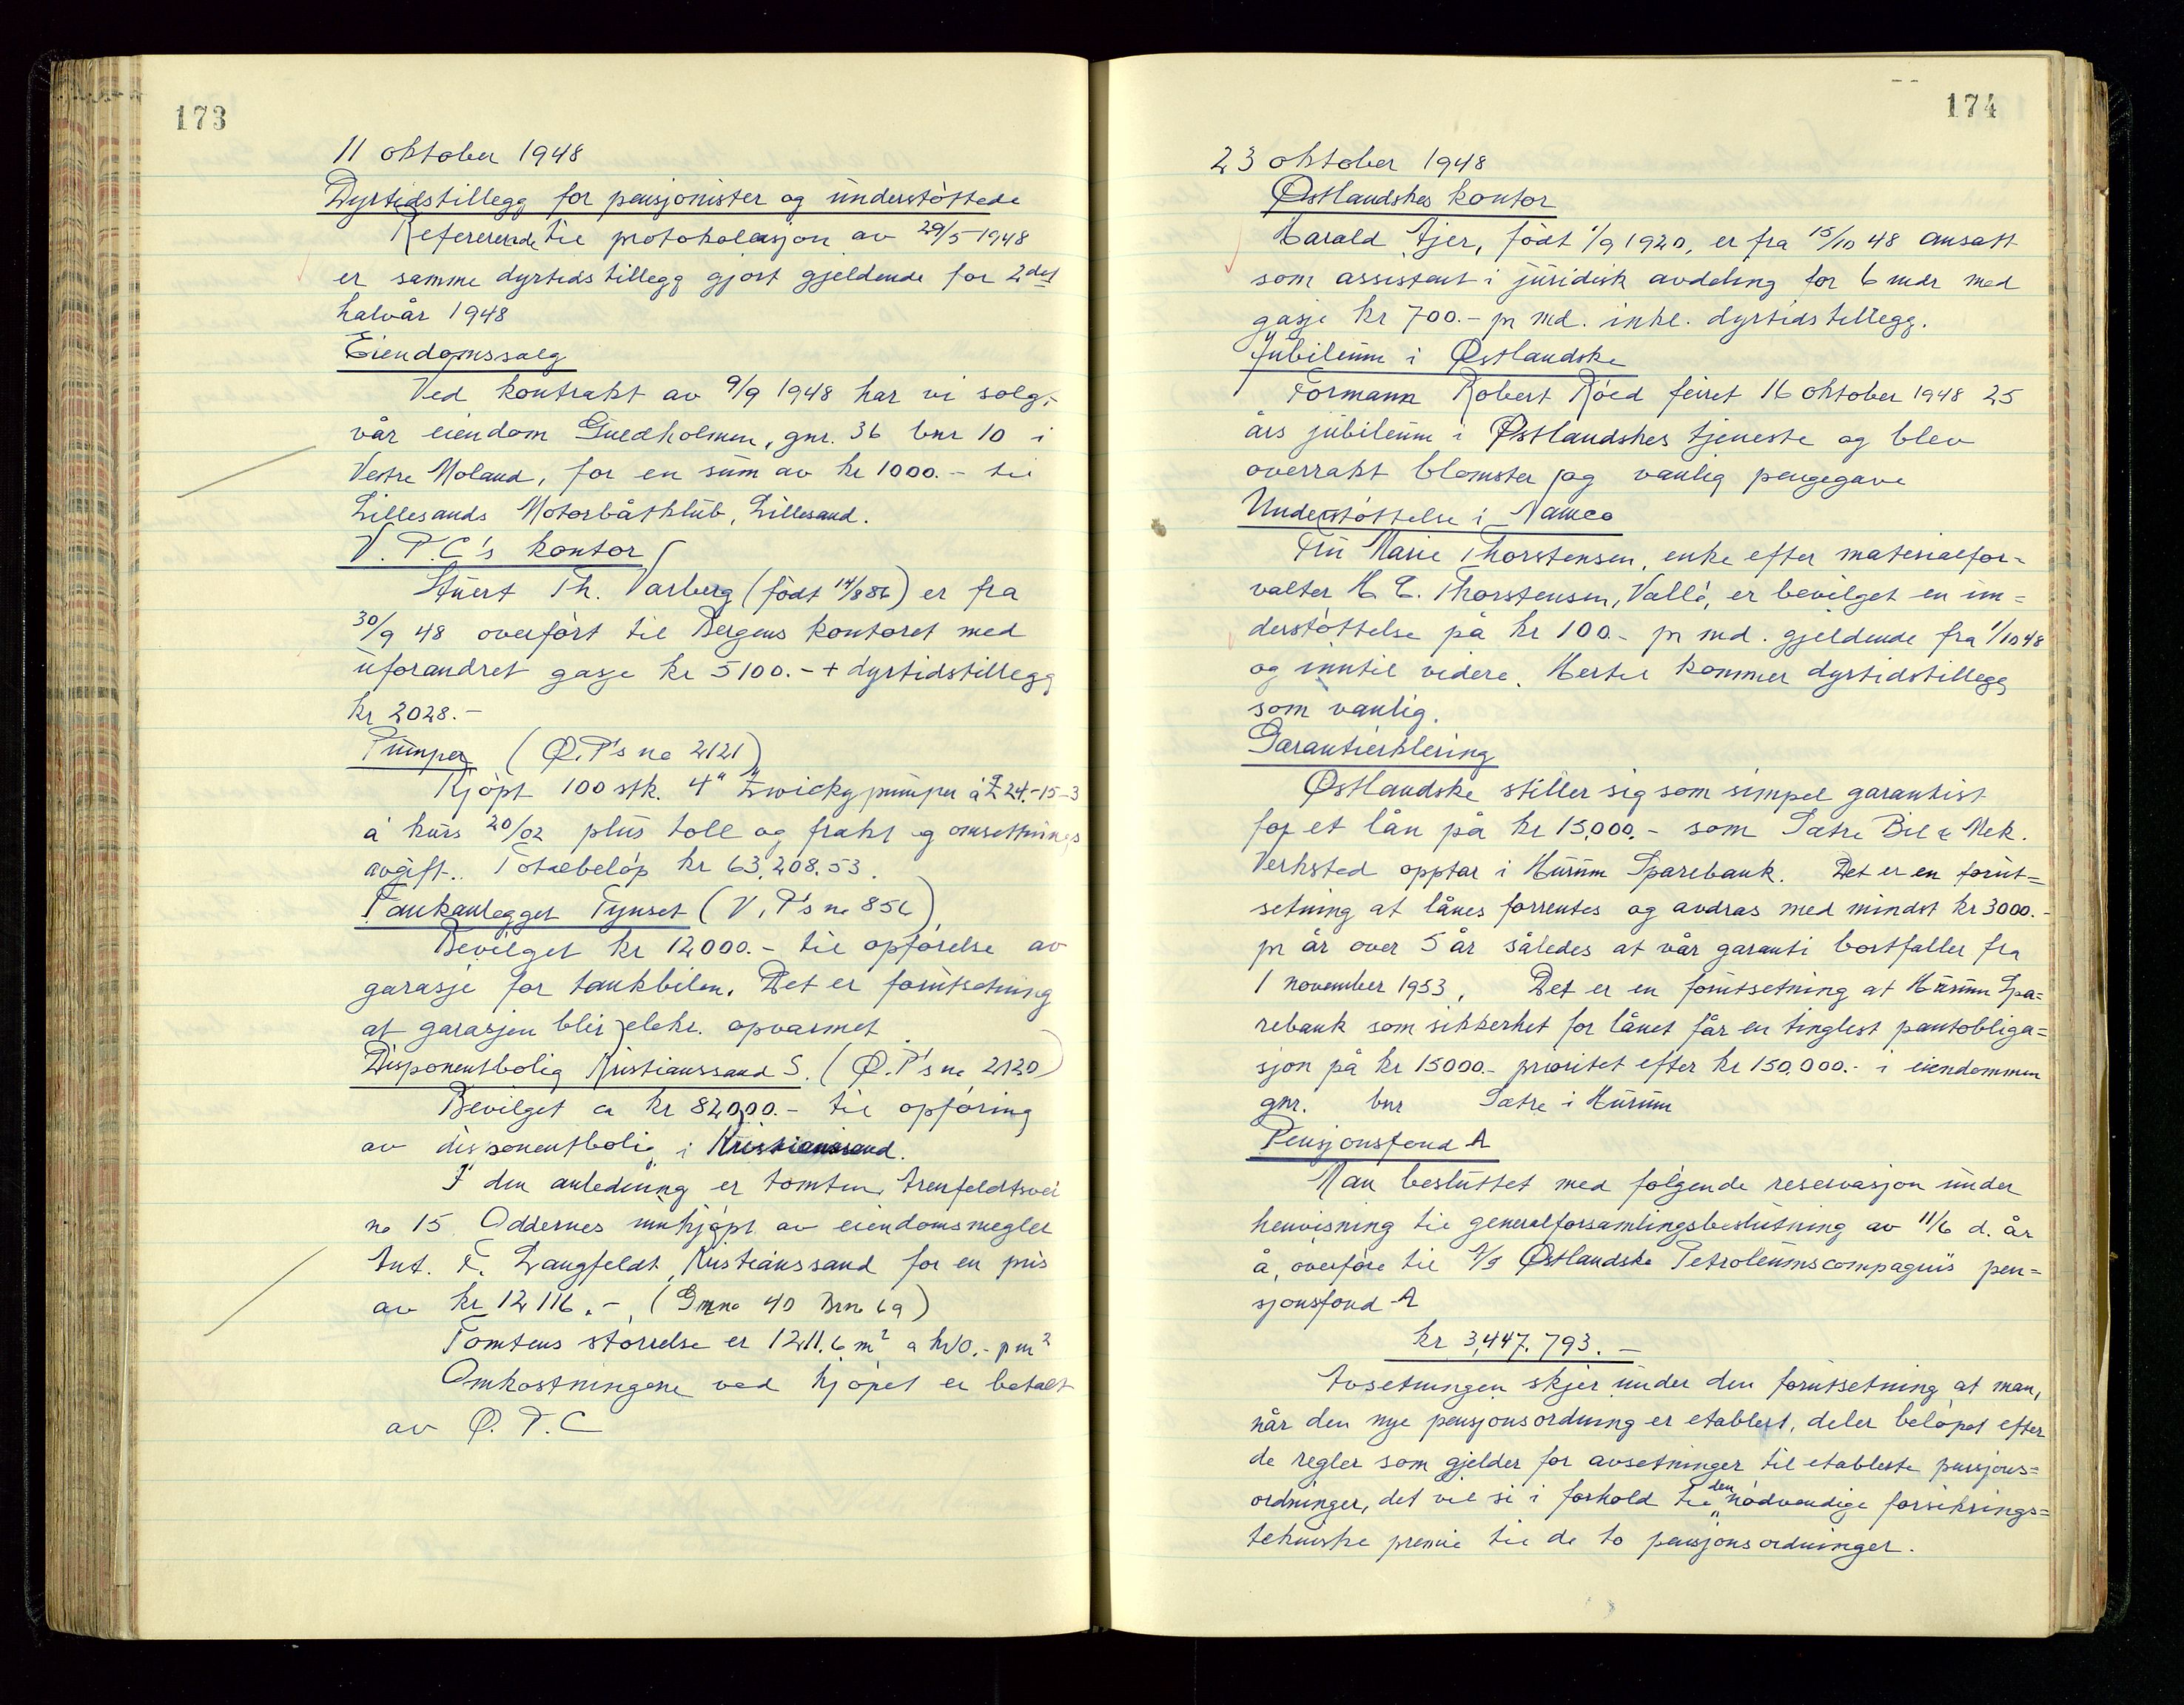 173
11 oktober 1948
Dyrtidstillegg for pensjonister og understøttede
Refererende til protokolasjon av 29/5 1948
er samme dyrtidstillegg gjort gjeldende for 2det
halvår 1948
Eiendomssalg
Ved kontrakt av 9/9 1948 har vi solgt
vår eiendom Guedholmen, gnr. 36 bnr 10 i
Vestre Moland, for en sum av kr 1000.- til
Lillesands Motorbåtklub, Lillesand.
V.P.C's kontor
Stuert Th. Varberg (født 14/8 86) er fra
30/9 48 overført til Bergens kontoret med
uforandret gasje kr 5100.- + dyrtidstillegg
kr 2028.-
Pumper (Ø.P's no 2121)
Kjøpt 100 stk. 4" Zwicky pumper á £ 24.-15-3
á kurs 20/02 plus toll og frakt og omsetnings
avgift. Totalbeløp kr 63.208.53.
Tankanlegget Tynset (V.P's no 856)
Bevilget kr 12000.- til opførelse av
garasje for tankbilen. Det er forutsetning
at garasjen blir elekr. opvarmet
Disponentbolig Kristianssand S. (Ø.P's no 2120)
Bevilget ca kr 82000.- til opføring
av disponentbolig i Kristianssand.
I den anledning er tomten Arenfeldtsvei
no 15 Oddernes innkjøpt av eiendomsmegler
Ant. F. Langfeldt, Kristianssand for en pris
av kr 12116.-, (Gnno 40 Brno 69)
Tomtens størrelse er 1211.6 m² a kr 10.- p m²
Omkostningene ved kjøpet er betalt
av Ø.P.C
174
23 oktober 1948
Østlandskes kontor
Harald Ajer, født 1/9 1920, er fra 15/10 48 ansatt
som assistent i juridisk avdeling for 6 mdr med
gasje kr 700.- pr md. inkl. dyrtidstillegg.
Jubileum i Østlandske
Formann Robert Röed feiret 16 oktober 1948 25
års jubileum i Østlandskes tjeneste og blev
overrakt blomster og vanlig pengegave
Understøttelse i Namco
Fru Marie Thorstensen, enke efter materialfor-
valter H E. Thorstensen, Vallø, er bevilget en un=
derstøttelse på kr 100.- pr md. gjeldende fra 1/10 48
og inntil videre. Hertil kommer dyrtidstillegg
som vanlig.
Garantierklering
Østlandske stiller sig som simpel garantist
for et lån på kr 15.000.- som Sætre Bil & Mek.
Verksted opptar i Hurum Sparebank. Det er en forut=
setning at lånes forrentes og avdras med mindst kr 3000.-
pr år over 5 år således at vår garanti bortfaller fra
1 november 1953. Det er en forutsetning at Hurum Spa=
rebank som sikkerhet for lånet får en tinglest pantobliga=
sjon på kr 15000.- prioritet efter kr 150.000.- i eiendommen
gnr. bnr Sætre i Hurum
Pensjonsfond A
Man besluttet med følgende reservasjon under
henvisning til generalforsamlingsbeslutning av 11/6 d. år
å, overføre til A/S Østlandske Petroleumscompagnis pen=
sjonsfond A
kr 3,447.793.-
Avsetningen skjer under den forutsetning at man,
når den nye pensjonsordning er etablert, deler beløpet efter
de regler som gjelder for avsetninger til etablerte pensjons=
ordninger, det vil si i forhold til den nødvendige forsikrings=
tekniske premie til de to pensjonsordninger.